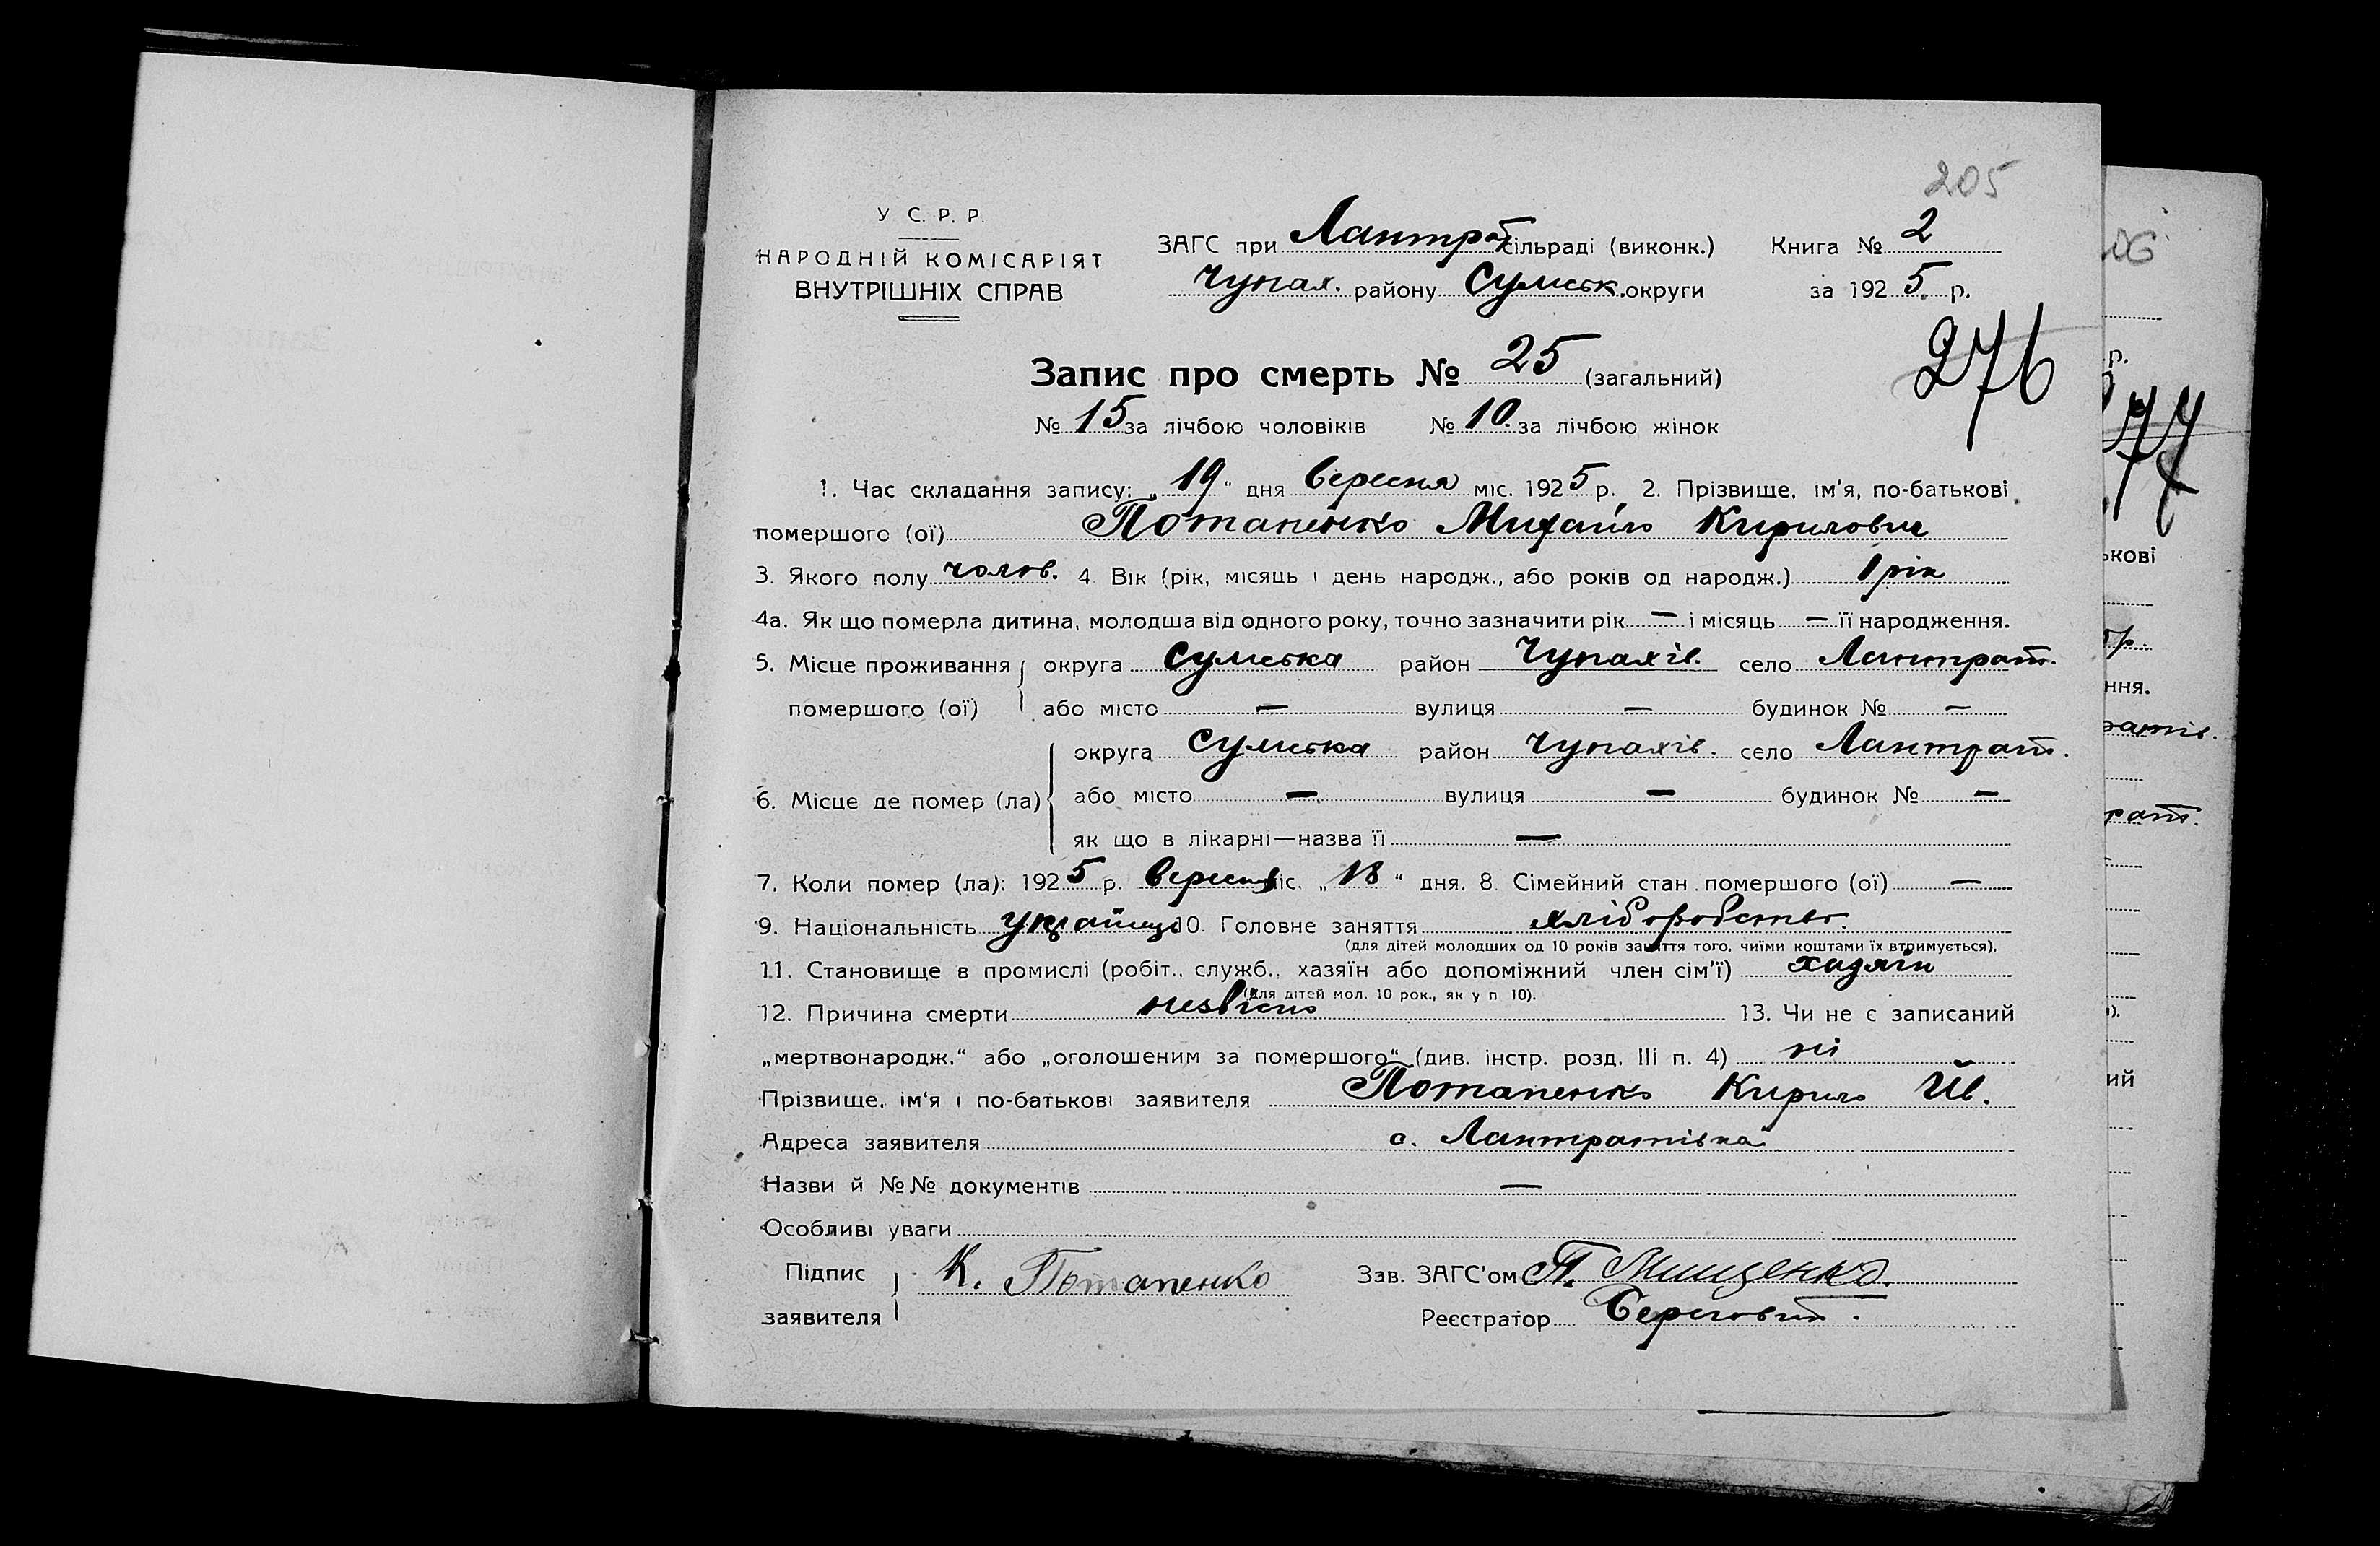 205
У С. Р. Р.
НАРОДНІЙ КОМІСАРІЯТ
ВНУТРІШНІХ СПРАВ
ЗАГС при Лантрат сільраді (виконк.) Книга № 2
Чупах. району Сумськ. округи за 1925 р.
276
Запис про смерть № 25 (загальний)
№ 15 за лічбою чоловіків № 10. за лічбою жінок
1. Час складання запису: „19“ дня вересня міс. 1925 р. 2. Прізвище, ім'я, по-батькові
помершого (ої) Потапенко Михайло Кирилович
3. Якого полу чолов. 4. Вік (рік, місяць і день народж., або років од народж.) 1 рік
4а. Як що померла дитина, молодша від одного року, точно зазначити рік — і місяць — її народження.
5. Місце проживання округа Сумська район Чупахів. село Лантрат.
помершого (ої) або місто — вулиця — будинок № —
округа Сумська район Чупахів. село Лантрат.
6. Місце де помер (ла) або місто — вулиця — будинок № —
як що в лікарні—назва її —
7. Коли помер (ла): 1925 р. вересня міс. „18“ дня. 8. Сімейний стан помершого (ої) —
9. Національність українець 10. Головне заняття хліборобство.
(для дітей молодших од 10 років заняття того, чиїми коштами їх втримується).
11. Становище в промислі (робіт., служб., хазяїн або допоміжний член сім'ї) хазяїн
(для дітей мол. 10 рок., як у п 10).
12. Причина смерти 13. Чи не є записаний
„мертвонародж.“ або „оголошеним за помершого“ (див. інстр. розд. III п. 4) ні
Прізвище, ім'я і по-батькові заявителя Потапенко Кирило Ів.
Адреса заявителя с. Лантратівка
Назви й №№ документів —
Особливі уваги
Підпис заявителя К. Потапенко Зав. ЗАГС'ом П. Мищенко.
Реєстратор